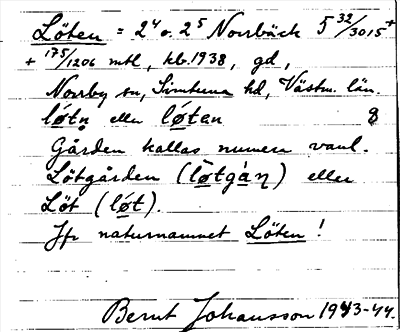 Löten = 2⁴ o. 2⁵ Norrbäck 5 32/3015 +
+ 175/1206 mtl, kb. 1938, gd,
Norrby sn, Simtuna hd, Västm. län.
lø̄tn̥ eller lø̄tan 8
Gården kallas numera vanl.
Lötgården (lø̄tgàn) eller
Löt (lø̄t).
Jfr naturnamnet Löten!
Bernt Johansson 1943-44.